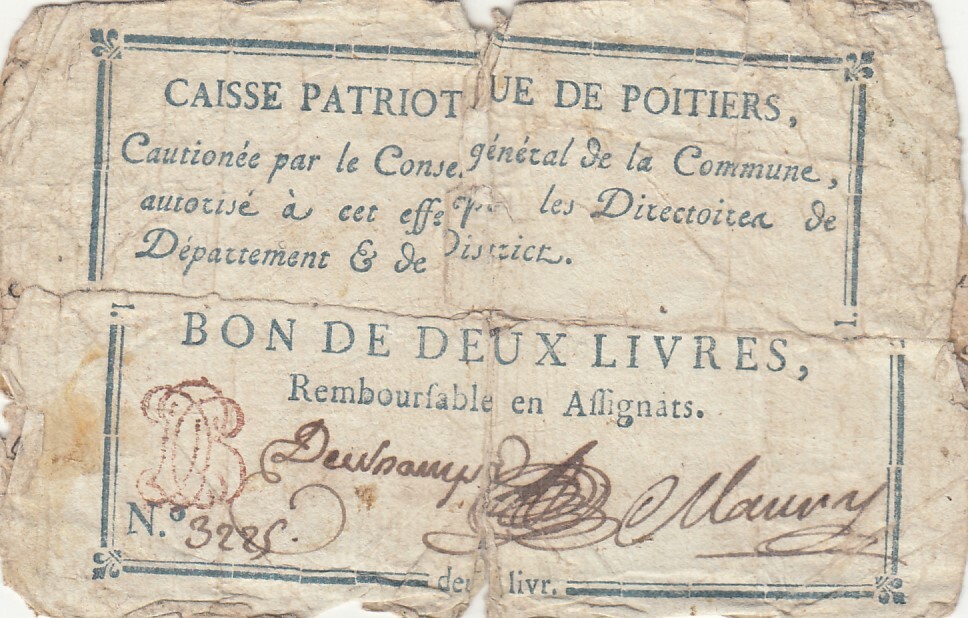 CAISSE PATRIOT UE DE POITIERS,
Cautionée par le Conse. général de la Commune,
autorisé à cet effe les Directoires de
Département & de District.
BON DE DEUX LIVRES,
Remboursable en Assignats.
Deschamps Maury
N.o 3225.
deux livr.